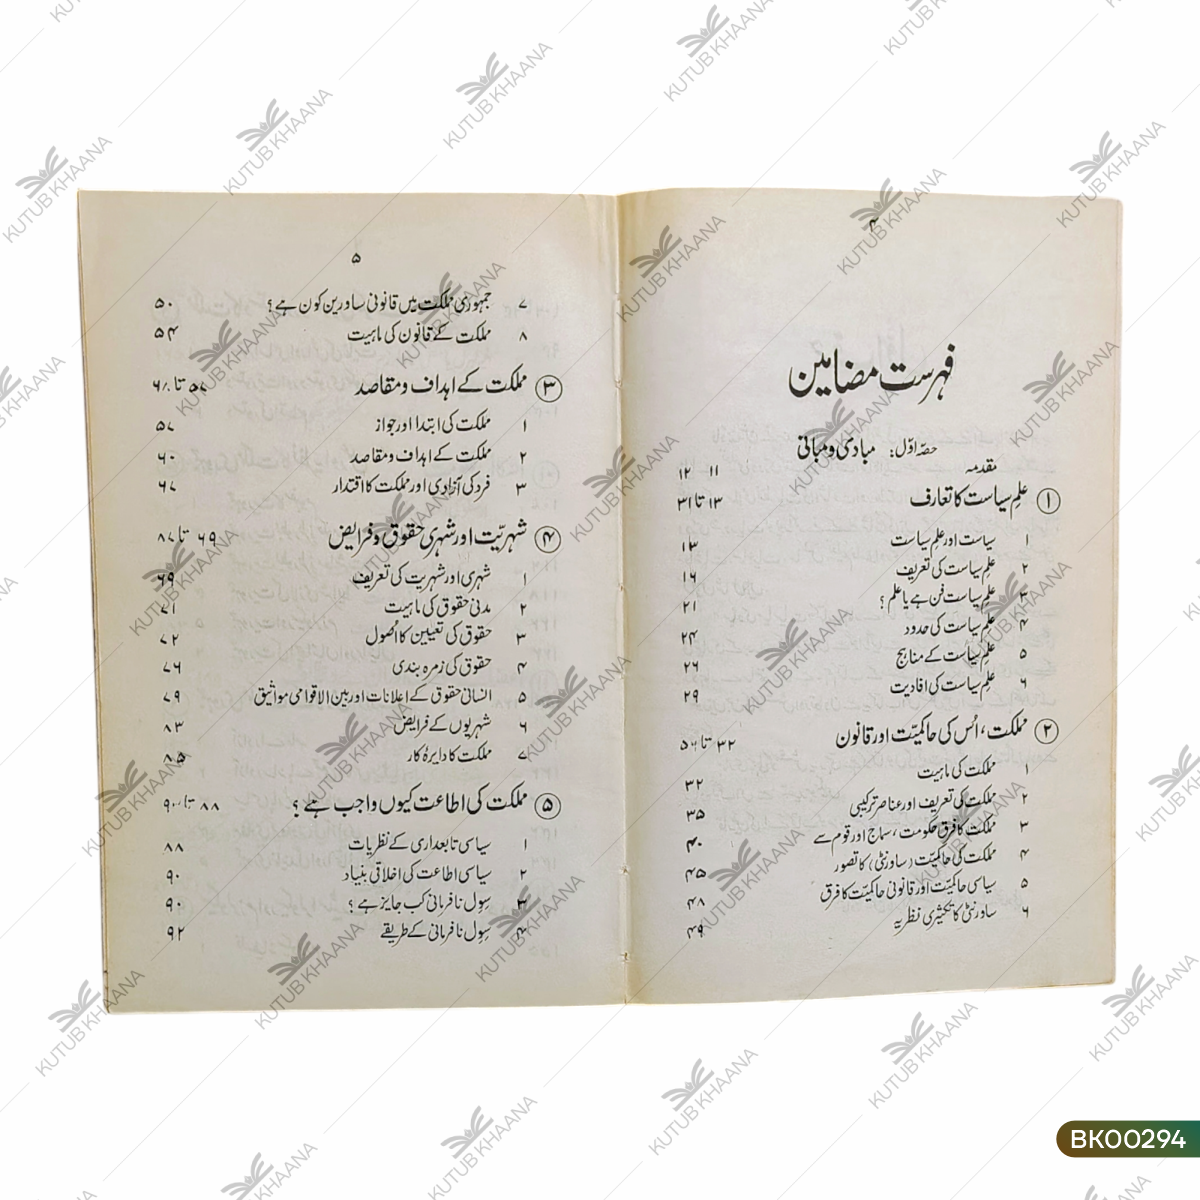 ۴
فہرست مضامین
حصہ اوّل: مبادی و مبانی
مقدمہ ۱۱ ۱۲
۱ علمِ سیاست کا تعارف ۱۳ تا ۳۱
۱ سیاست اور علمِ سیاست ۱۳
۲ علمِ سیاست کی تعریف ۱۶
۳ علمِ سیاست فن ہے یا علم؟ ۲۱
۴ علمِ سیاست کی حدود ۲۴
۵ علمِ سیاست کے مناہج ۲۶
۶ علمِ سیاست کی افادیت ۲۹
۲ مملکت، اُس کی حاکمیّت اور قانون ۳۲ تا ۵۶
۱ مملکت کی ماہیت ۳۲
۲ مملکت کی تعریف اور عناصر ترکیبی ۳۵
۳ مملکت کا فرق حکومت، سماج اور قوم سے ۴۰
۴ مملکت کی حاکمیّت (ساورنٹی) کا تصور ۴۵
۵ سیاسی حاکمیّت اور قانونی حاکمیّت کا فرق ۴۸
۶ ساورنٹی کا تکثیری نظریہ ۴۹
۵
۷ جمہوری مملکت میں قانونی ساورین کون ہے؟ ۵۰
۸ مملکت کے قانون کی ماہیت ۵۴
۳ مملکت کے اہداف و مقاصد ۵۷ تا ۶۸
۱ مملکت کی ابتدا اور جواز ۵۷
۲ مملکت کے اہداف و مقاصد ۶۰
۳ فرد کی آزادی اور مملکت کا اقتدار ۶۷
۴ شہریّت اور شہری حقوق و فرایض ۶۹ تا ۸۷
۱ شہری اور شہریت کی تعریف ۶۹
۲ مدنی حقوق کی ماہیت ۷۱
۳ حقوق کی تعیین کا اُصول ۷۲
۴ حقوق کی زمرہ بندی ۷۶
۵ انسانی حقوق کے اعلانات اور بین الاقوامی مواثیق ۷۹
۶ شہریوں کے فرایض ۸۳
۷ مملکت کا دایرۂ کار ۸۵
۵ مملکت کی اطاعت کیوں واجب ہے؟ ۸۸ تا
۱ سیاسی تابعداری کے نظریات ۸۸
۲ سیاسی اطاعت کی اخلاقی بنیاد ۹۰
۳ سِوِل نافرمانی کب جایز ہے؟ ۹۰
۴ سِوِل نافرمانی کے طریقے ۹۲
KUTUB KHAANA
BK00294